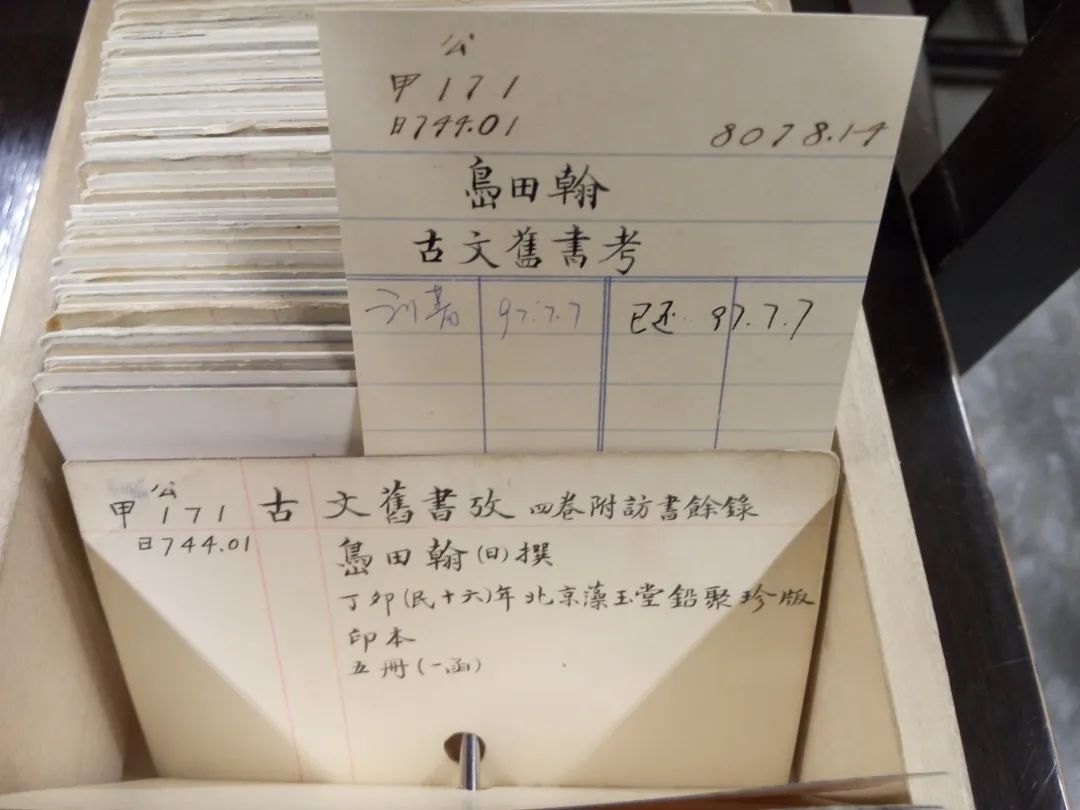 公
甲171
日744.01
8078.14
島田翰
古文舊書考
97.7.7 已还 97.7.7
公
甲 171 古文舊書攷 四卷附訪書餘錄
日744.01
島田翰(日)撰
丁卯(民十六)年北京藻玉堂鉛聚珍版
印本
五冊(一函)